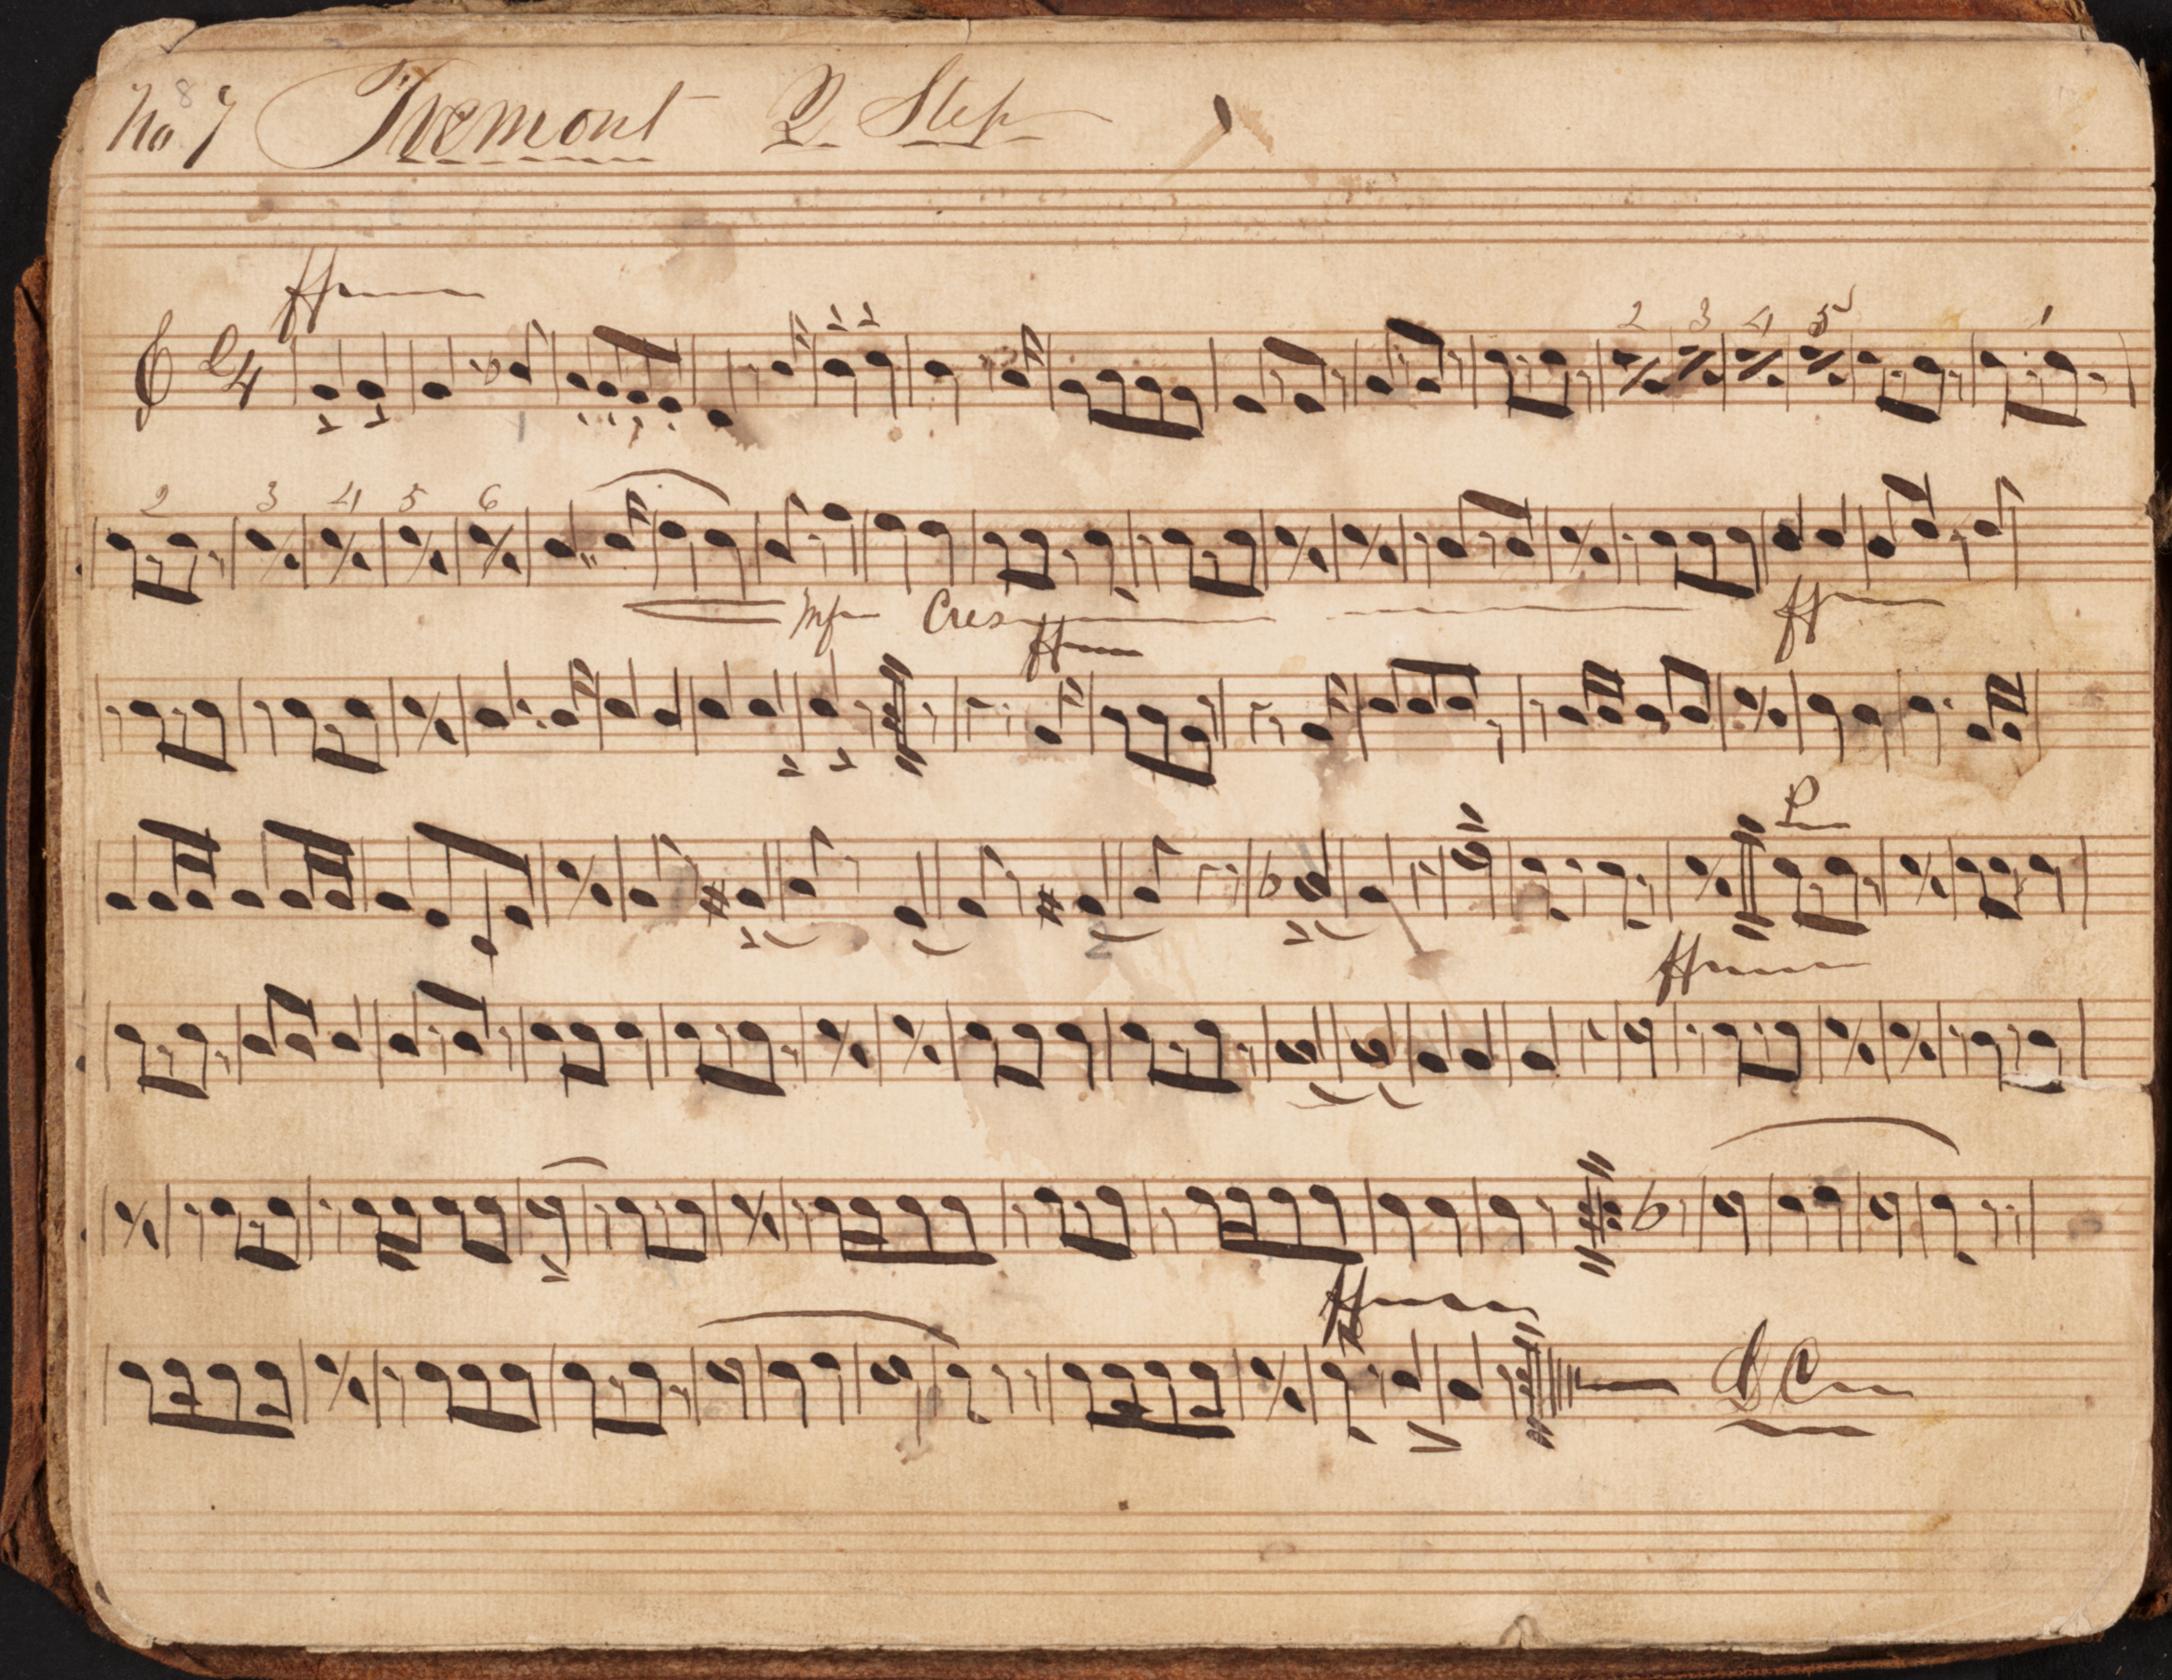 No 7 8 Tremont 2 Step
ff
2 4
2 3 4 5 1
2 3 4 5 6
mf Cres ff
ff
P
ff
ff
D C